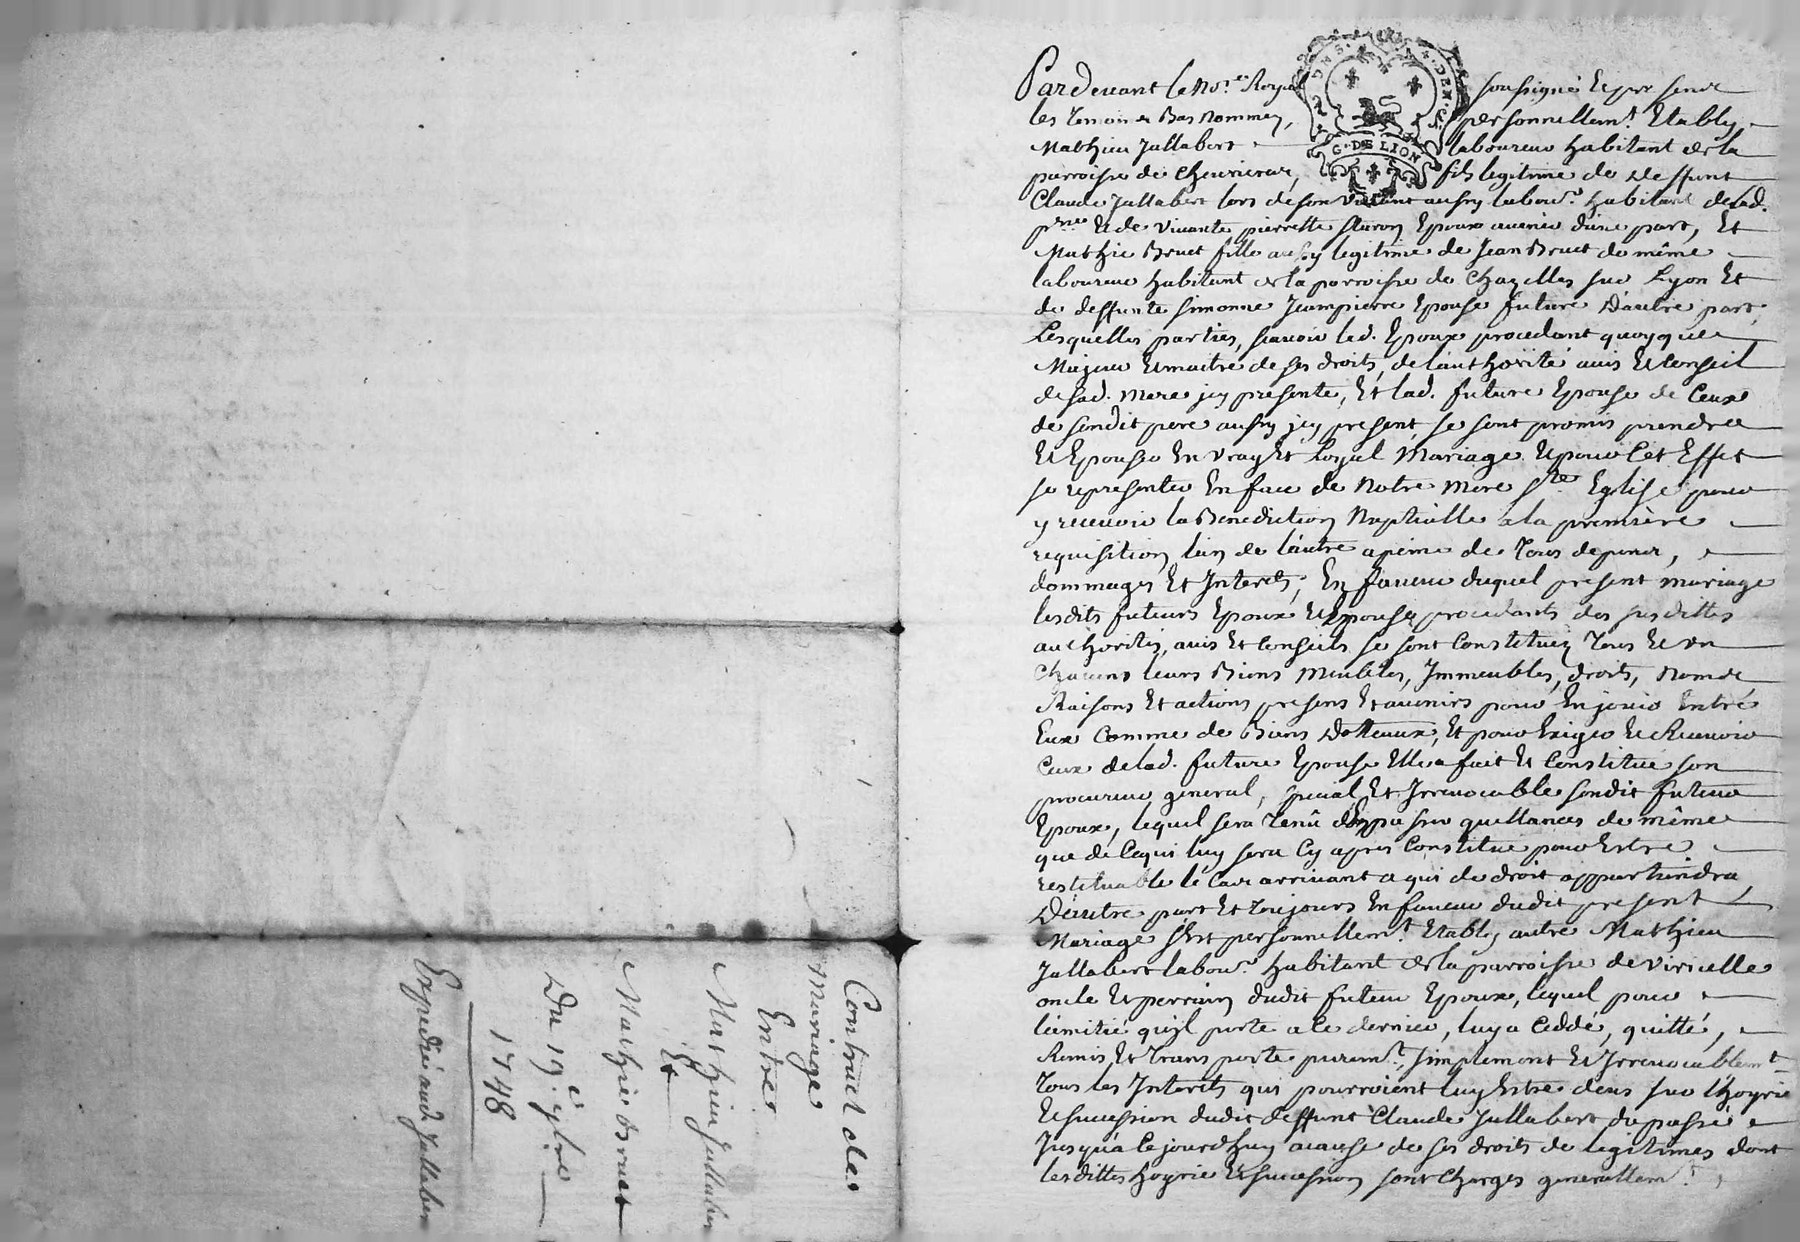 Contract de
mariage
Entre
Mathieu Jullabert
Et
Mathie Bruet
Du 19e 9bre
1748
Expedié aud. Jullabert
GEN. DE LION
G. DE LION
Pardevant le No.re Royal soussigné Et par sence
les Temoins Bas Nommez, personnellem.t Etably
Mathieu Jullabert laboureur habitant de la
parroisse de Chevrieres, fils legitime de deffunt
Claude Jullabert lors de son vivant aussy labour.r habitant de lad.
p.sse Et de vivante pierrette Epoux avenir d'une part, Et
Mathie Bruet fille aussy legitime de Jean Bruet de même
laboureur habitant de la parroisse de Chazelles sur Lyon Et
de deffunte Simonne Jeampierre Epouse future D'autre part,
Lesquelles parties, sçavoir led. Epoux procedant quoyque
Majeur Et maitre de ses droits, de l'authorité avis Et Conseil
de sad. Mere icy presente, Et lad. future Epouse de Ceux
de sondit pere aussy icy present, se sont promis prendre
Et Epouser En vray Et Loyal Mariage Et pour Cet Effet
se representer En face de Notre Mere S.te Eglise pour
y recevoir la Benediction Nuptialle a la premiere
requisition l'un de l'autre a peine de Tous depens,
dommages Et Interets; En faveur duquel present mariage
lesdits futurs Epoux Et Epouse procedants des susdittes
authorités, avis Et Conseils se sont Constituez Tous Et un
Chacuns leurs Biens Meubles, Immeubles, droits, Noms,
Raisons Et actions presens Et avenirs pour En jouir Entre
Eux Comme de Biens Dotteaux, Et pour Exiger Et Recevoir
Ceux de lad. future Epouse Elle a fait Et Constitué son
procureur general, special Et Irrevocable sondit futeur
Epoux, lequel sera Tenû d'En passer quittances de même
que de Ce qui luy sera Cy apres Constitué pour Estre
restituable le Cas arrivant a qui de droit appartiendra
D'autre part Et Toujours En faveur dudit present
Mariage s'Est personnellem.t Etably autre Mathieu
Jullabert labour.r habitant de la parroisse de Viricelle
oncle Et perrain dudit futeur Epoux, lequel pour
l'amitié qu'jl porte a Ce dernier, luy a Ceddé, quitté,
Remis Et Transporté purem.t, simplement Et Irrevocablem.t
Tous les Interets qui pourroient luy Estre deus sur l'hoyrie
Et succession dudit deffunt Claude Jullabert du passé
Jusqu'a Cejourdhuy acause de ses droits de legitimes dont
lesdittes hoyrie Et succession sont Charges generallem.t,